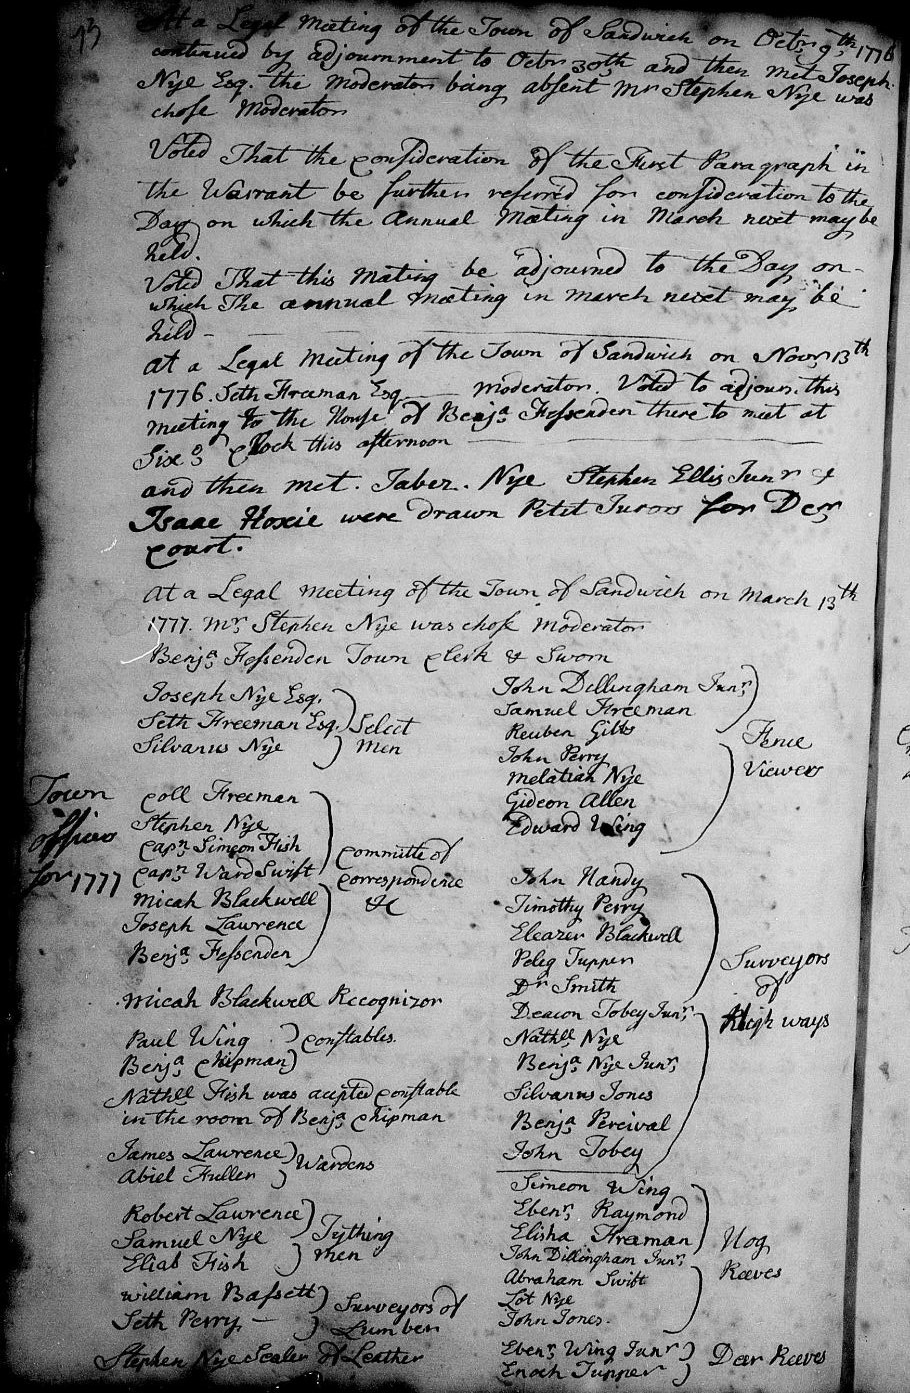 93
At a Legal Meeting of the Town of Sandwich on Octr 9th 1776
continued by adjournment to Octr 30th and then met Joseph
Nye Esq. the Moderator being absent Mr Stephen Nye was
chose Moderator
Voted That the consideration of the First Paragraph in
the Warrant be further referred for consideration to the
Day on which the Annual Meeting in March next may be
held.
Voted That this Meting be adjourned to the Day on
which The annual Meeting in March next may be
held -
At a Legal Meeting of the Town of Sandwich on Novr 13th
1776. Seth Freeman Esq Moderator. Voted to adjourn this
Meeting to the House of Benja Fessenden there to meet at
Six o Clock this afternoon
and then met. Jabez. Nye Stephen Ellis Junr &
Isaac Hoxie were drawn Petit Jurors for Decr
Court.
At a Legal Meeting of the Town of Sandwich on March 13th
1777. Mr Stephen Nye was chose Moderator
Benja Fessenden Town Clerk & Sworn
Joseph Nye Esq.
Seth Freeman Esq. Select
Silvanus Nye Men
Town officers for 1777
Coll Freeman
Stephen Nye
Capn Simeon Fish
Capn Ward Swift
Micah Blackwell
Joseph Lawrence
Benja Fessenden
Committe of
Correspondence
&c
Micah Blackwell Recognizor
Paul Wing Constables.
Benja Chipman
Nathll Fish was acepted Constable
in the room of Benja Chipman
James Lawrence Wardens
Abiel Fuller
Robert Lawrence
Samuel Nye Tything
Eliab Fish Men
William Bassett Surveyors of
Seth Perry - Lumber
Stephen Nye Sealer of Leather
John Dillingham Junr
Samuel Freeman
Reuben Gibbs
John Perry
Melatiah Nye
Gideon Allen
Edward Wing
Fence
Viewers
John Handy
Timothy Perry
Eleazer Blackwell
Peleg Tupper
Dr Smith
Deacon Tobey Junr
Nathll Nye
Benja Nye Junr
Silvanus Jones
Benja Percival
John Tobey
Surveyors
of
High ways
Simeon Wing
Ebenr Raymond
Elisha Freeman
John Dillingham Junr
Abraham Swift
Lot Nye
John Jones.
Hog
Reeves
Ebenr Wing Junr
Enoch Tupper
Deer Reeves